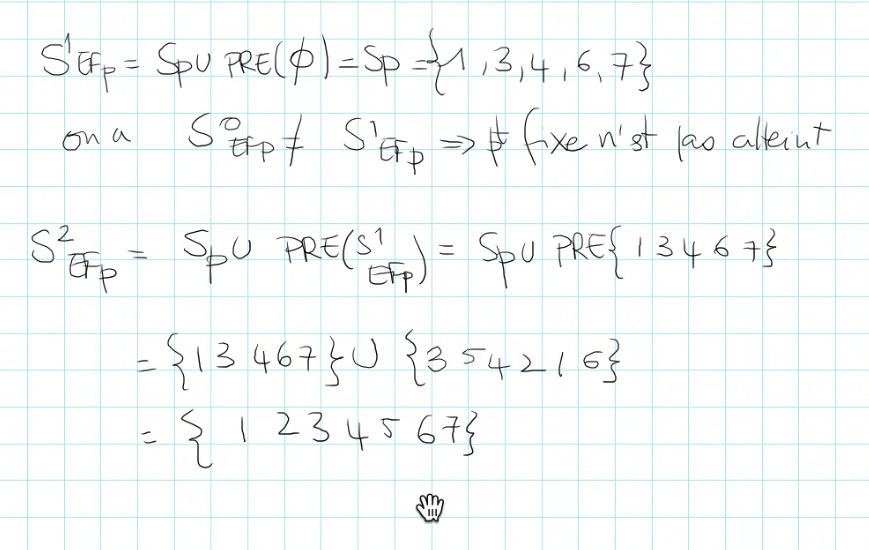 S¹EFp = Sp ∪ PRE(∅) = Sp = {1, 3, 4, 6, 7}
on a S⁰EFp ≠ S¹EFp => pt fixe n'st pas atteint
S²EFp = Sp ∪ PRE(S¹EFp) = Sp ∪ PRE{1 3 4 6 7}
= {1 3 4 6 7} ∪ {3 5 4 2 1 6}
= { 1 2 3 4 5 6 7}